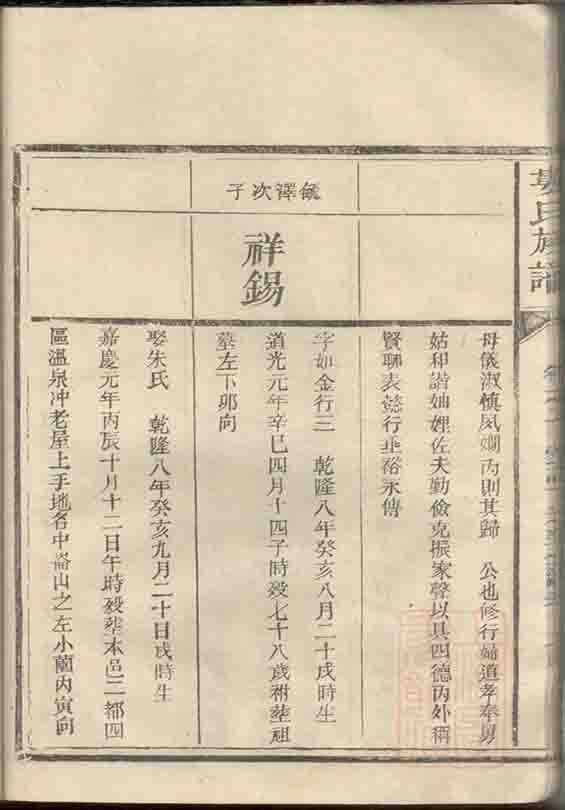 吳氏族譜
母儀淑慎夙嫻內則其歸 公也修行婦道孝奉舅
姑和諧妯娌佐夫勤儉克振家聲以具四德內外稱
賢聊表懿行垂裕永傳
毓譯次子
祥錫
字如金行三 乾隆八年癸亥八月二十戌時生
道光元年辛巳四月十四子時殁七十八歲祔塟祖
塋左下卯向
娶朱氏 乾隆八年癸亥九月二十日戌時生
嘉慶元年丙辰十月十二日午時殁塟本邑二都四
區溫泉冲老屋上手地名中崙山之左小蘭內寅向